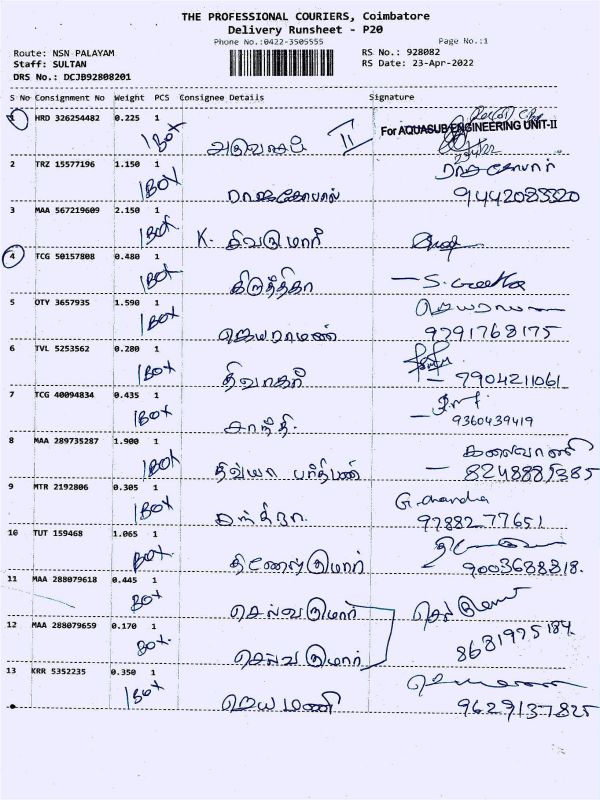 THE PROFESSIONAL COURIERS, Coimbatore
Delivery Runsheet - P20
Phone No.:0422-3505555 Page No.:1
Route: NSN PALAYAM RS No.: 928082
Staff: SULTAN RS Date: 23-Apr-2022
DRS No.: DCJB92808201
S No Consignment No Weight PCS Consignee Details Signature
1 HRD 326254482 0.225 1
For AQUASUB ENGINEERING UNIT-II
1 BOX II
23/4/22
2 TRZ 15577196 1.150 1
1 BOX ராஜகோபால் 9442083320
3 MAA 567219609 2.150 1
1 BOX K. சிவகுமார்
4 TCG 50157808 0.480 1
1 BOX கிருத்திகா S. Geetha
5 OTY 3657935 1.590 1
1 BOX ஜெயராமன் 9791768175
6 TVL 5253562 0.280 1
1 BOX திவாகர் 7904211061
7 TCG 40094834 0.435 1
1 BOX சாந்தி. 9360439419
8 MAA 289735287 1.900 1 கலைவாணி
1 BOX திவ்யா பார்திபன்
9 MTR 2192806 0.305 1 G. chandra
1 BOX சந்திரா. 97882 77651
10 TUT 159468 1.065 1
BOX தினேஷ்குமார் 9003688818.
11 MAA 288079618 0.445 1
BOX செல்வகுமார்
12 MAA 288079659 0.170 1 8681975184
BOX. செல்வகுமார்
13 KRR 5352235 0.350 1
1 BOX ஜெயமணி 9629137825